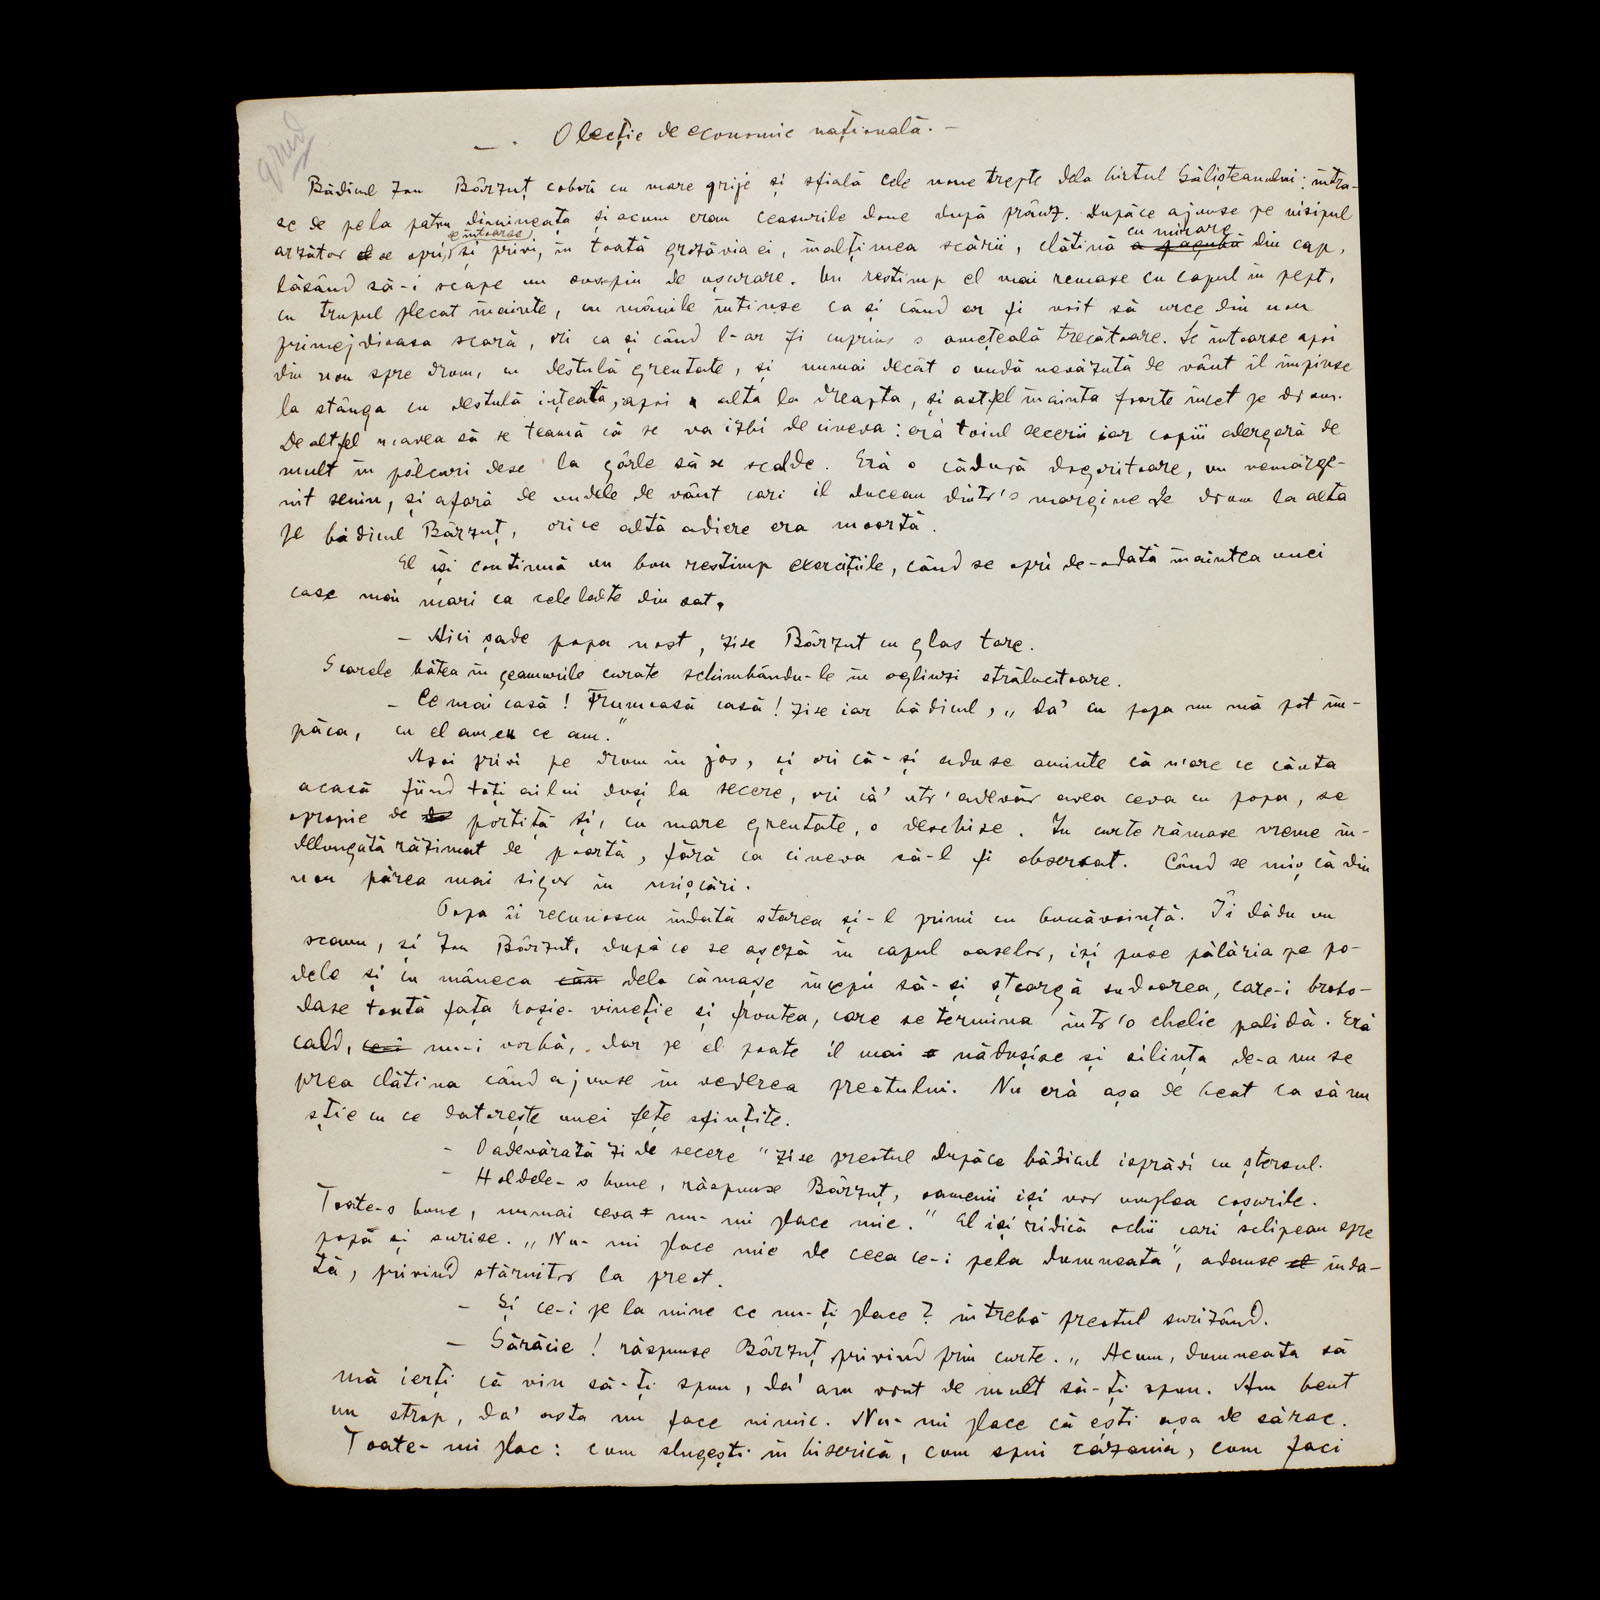 — . O lecție de economie națională. —
Bădicul Ion Bârzuț coborî cu mare grije și sfială cele nouă trepte dela birtul Sălișteanului: intra-
se de pela patru dimineața și acum erau ceasurile două după prânz. Dupăce ajunse pe nisipul
arzător se opri, se întoarse, și privi, în toată grozăvia ei, înalțimea scării, clătină cu mirare din cap,
lăsând să-i scape un suspin de ușurare. Un restimp el mai remase cu capul în pept,
cu trupul plecat înainte, cu mânile întinse ca și când ar fi voit să urce din nou
primejdioasa scară, ori ca și când l-ar fi cuprins o amețeală trecătoare. Se întoarse apoi
din nou spre drum, cu destulă greutate, și numai decât o undă nevăzută de vânt îl împinse
la stânga cu destulă iuțeală, apoi alta la dreapta, și astfel înainta foarte încet pe drum.
De altfel n'avea să se teamă că se va izbi de cineva: eră toiul secerii iar copiii alergară de
mult în pâlcuri dese la gârle să se scalde. Eră o căldură dogoritoare, un nemărgi-
nit senin, și afară de undele de vânt cari îl duceau dintr'o margine de drum la alta
pe bădicul Bârzuț, orice altă adiere era moartă.
El își continuă un bun restimp exercițiile, când se opri de-odată înaintea unei
case mai mari ca celelalte din sat.
— Aici șade popa nost, zise Bârzut cu glas tare.
Soarele bătea în geamurile curate schimbându-le în oglinzi strălucitoare.
— Ce mai casă! Frumoasă casă! zise iar bădicul, „da' cu popa nu mă pot îm-
păca, cu el am eu ce am."
Apoi privi pe drum în jos, și ori că-și aduse aminte că n'are ce căuta
acasă fiind toți ai lui duși la secere, ori că' ntr'adevăr avea ceva cu popa, se
apropie de portiță și, cu mare greutate, o deschise. In curte rămase vreme în-
delungată răzimat de poartă, fără ca cineva să-l fi observat. Când se mișcă din
nou părea mai sigur în mișcări.
Popa îi recunoscu îndată starea și-l primi cu bunăvoință. Îi dădu un
scaun, și Ion Bârzut, după ce se așeză în capul oaselor, își puse pălăria pe po-
dele și cu mâneca dela cămașe începu să-și șteargă sudoarea, care-i brobo-
dase toată fața roșie-vineție și fruntea, care se termina într'o chelie palidă. Eră
cald, nu-i vorbă, dar pe el poate îl mai nădușise și silința de-a nu se
prea clătina când ajunse în vederea preotului. Nu eră așa de beat ca să nu
știe cu ce datorește unei fețe sfințite.
— O adevărată zi de secere" zise preotul dupăce bădicul isprăvi cu ștersul.
— Holdele-s bune, răspunse Bârzuț, oamenii își vor umplea coșurile.
Toate-s bune, numai ceva nu-mi place mie." El își ridică ochii cari sclipeau spre
popă și surise. „Nu-mi place mie de ceea ce-i pela dumneata", adause înda-
tă, privind stăruitor la preot.
— Și ce-i pe la mine ce nu-ți place? întrebă preotul surizând.
— Sărăcie! răspunse Bârzuț privind prin curte. „Acum, dumneata să
mă ierți că vin să-ți spun, da' am vrut de mult să-ți spun. Am beut
un strop, da' asta nu face nimic. Nu-mi place că ești așa de sărac.
Toate-mi plac: cum slugești în biserică, cum spui cazania, cum faci